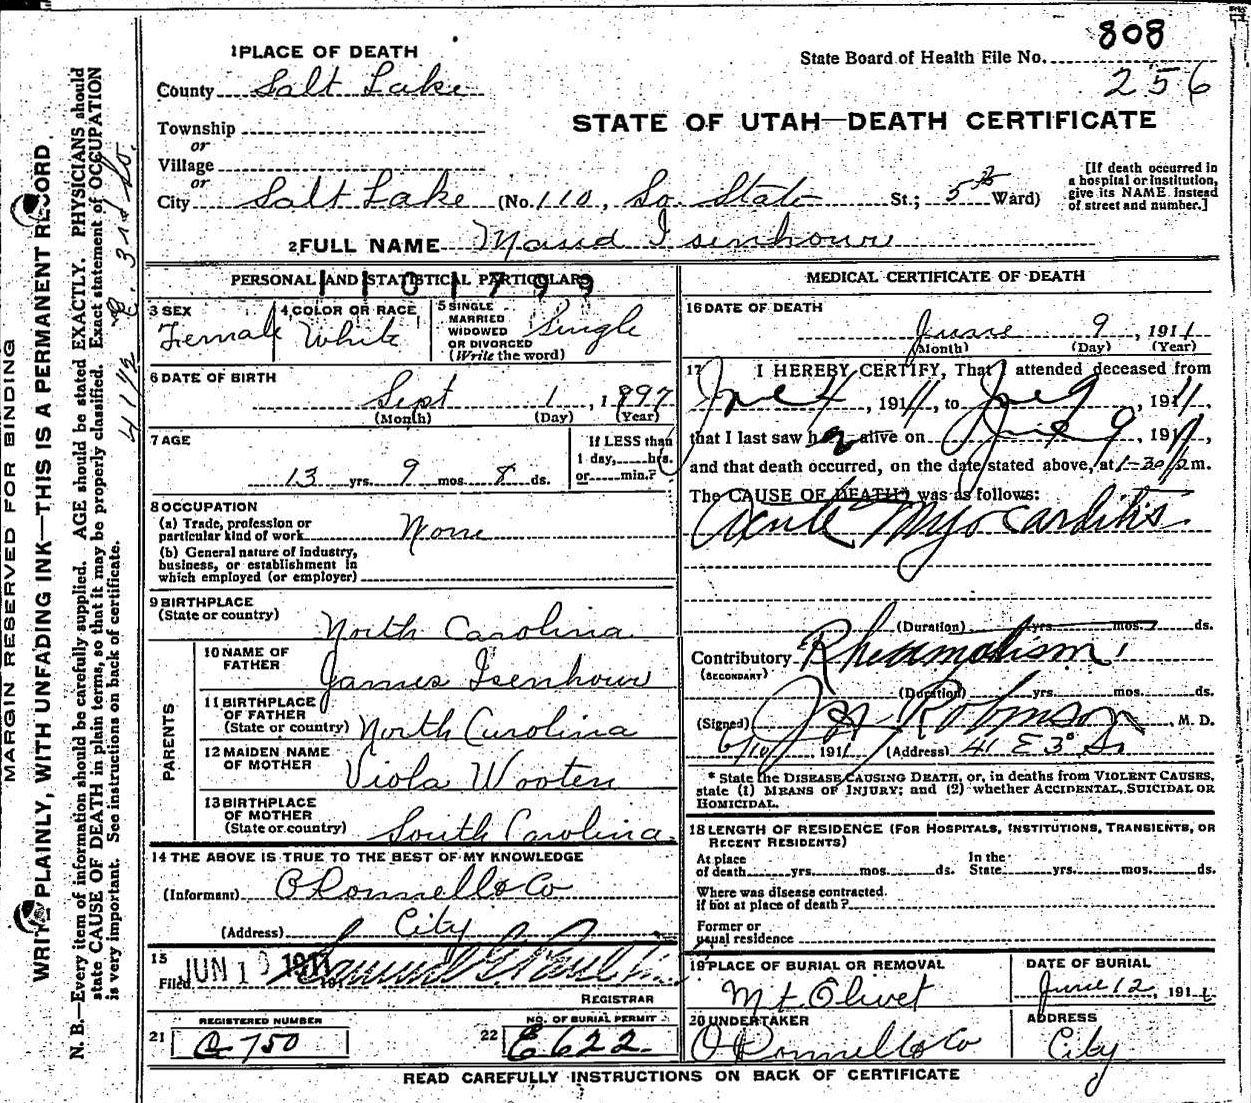 808
State Board of Health File No.
256
1 PLACE OF DEATH
County Salt Lake
STATE OF UTAH—DEATH CERTIFICATE
Township
or
Village
or
City Salt Lake (No. 110, So. State St.; 5th Ward)
[If death occurred in
a hospital or institution,
give its NAME instead
of street and number.]
2 FULL NAME Isenhour
PERSONAL AND STATISTICAL PARTICULARS
1101799
3 SEX
Female
4 COLOR OR RACE
White
5 SINGLE
MARRIED
WIDOWED
OR DIVORCED
(Write the word)
Single
6 DATE OF BIRTH
Sept 1, 1897
(Month) (Day) (Year)
7 AGE
13 yrs. 9 mos. 8 ds.
If LESS than
1 day, hrs.
or min.?
8 OCCUPATION
(a) Trade, profession or
particular kind of work None
(b) General nature of industry,
business, or establishment in
which employed (or employer)
9 BIRTHPLACE
(State or country)
North Carolina
PARENTS
10 NAME OF
FATHER
James Isenhour
11 BIRTHPLACE
OF FATHER
(State or country) North Carolina
12 MAIDEN NAME
OF MOTHER
Viola Wooten
13 BIRTHPLACE
OF MOTHER
(State or country) South Carolina
14 THE ABOVE IS TRUE TO THE BEST OF MY KNOWLEDGE
(Informant) O'Donnell & Co
(Address) City
15
Filed JUN 1 1911
REGISTRAR
21
REGISTERED NUMBER
750
22
NO. OF BURIAL PERMIT
E 622
MEDICAL CERTIFICATE OF DEATH
16 DATE OF DEATH
June 9, 1911
(Month) (Day) (Year)
17 I HEREBY CERTIFY, That I attended deceased from
June 4, 1911, to June 9, 1911,
that I last saw her alive on June 9, 1911,
and that death occurred, on the date stated above, at 1-30 m.
The CAUSE OF DEATH* was as follows:
Acute Myocarditis
(Duration) yrs. mos. ds.
Contributory Rheumatism
(SECONDARY)
(Duration) yrs. mos. ds.
(Signed) Jos Robinson, M. D.
6/10 1911 (Address) 41 E 3d So
* State the DISEASE CAUSING DEATH, or, in deaths from VIOLENT CAUSES,
state (1) MEANS OF INJURY; and (2) whether ACCIDENTAL, SUICIDAL OR
HOMICIDAL.
18 LENGTH OF RESIDENCE (FOR HOSPITALS, INSTITUTIONS, TRANSIENTS, OR
RECENT RESIDENTS)
At place
of death yrs. mos. ds.
In the
State yrs. mos. ds.
Where was disease contracted.
if not at place of death?
Former or
usual residence
19 PLACE OF BURIAL OR REMOVAL
Mt. Olivet
DATE OF BURIAL
June 12, 1911
20 UNDERTAKER
O'Donnell & Co
ADDRESS
City
READ CAREFULLY INSTRUCTIONS ON BACK OF CERTIFICATE
MARGIN RESERVED FOR BINDING
WRITE PLAINLY, WITH UNFADING INK—THIS IS A PERMANENT RECORD.
N. B.—Every item of information should be carefully supplied. AGE should be stated EXACTLY. PHYSICIANS should
state CAUSE OF DEATH in plain terms, so that it may be properly classified. Exact statement of OCCUPATION
is very important. See instructions on back of certificate.
41 1/2 E. 3rd So.